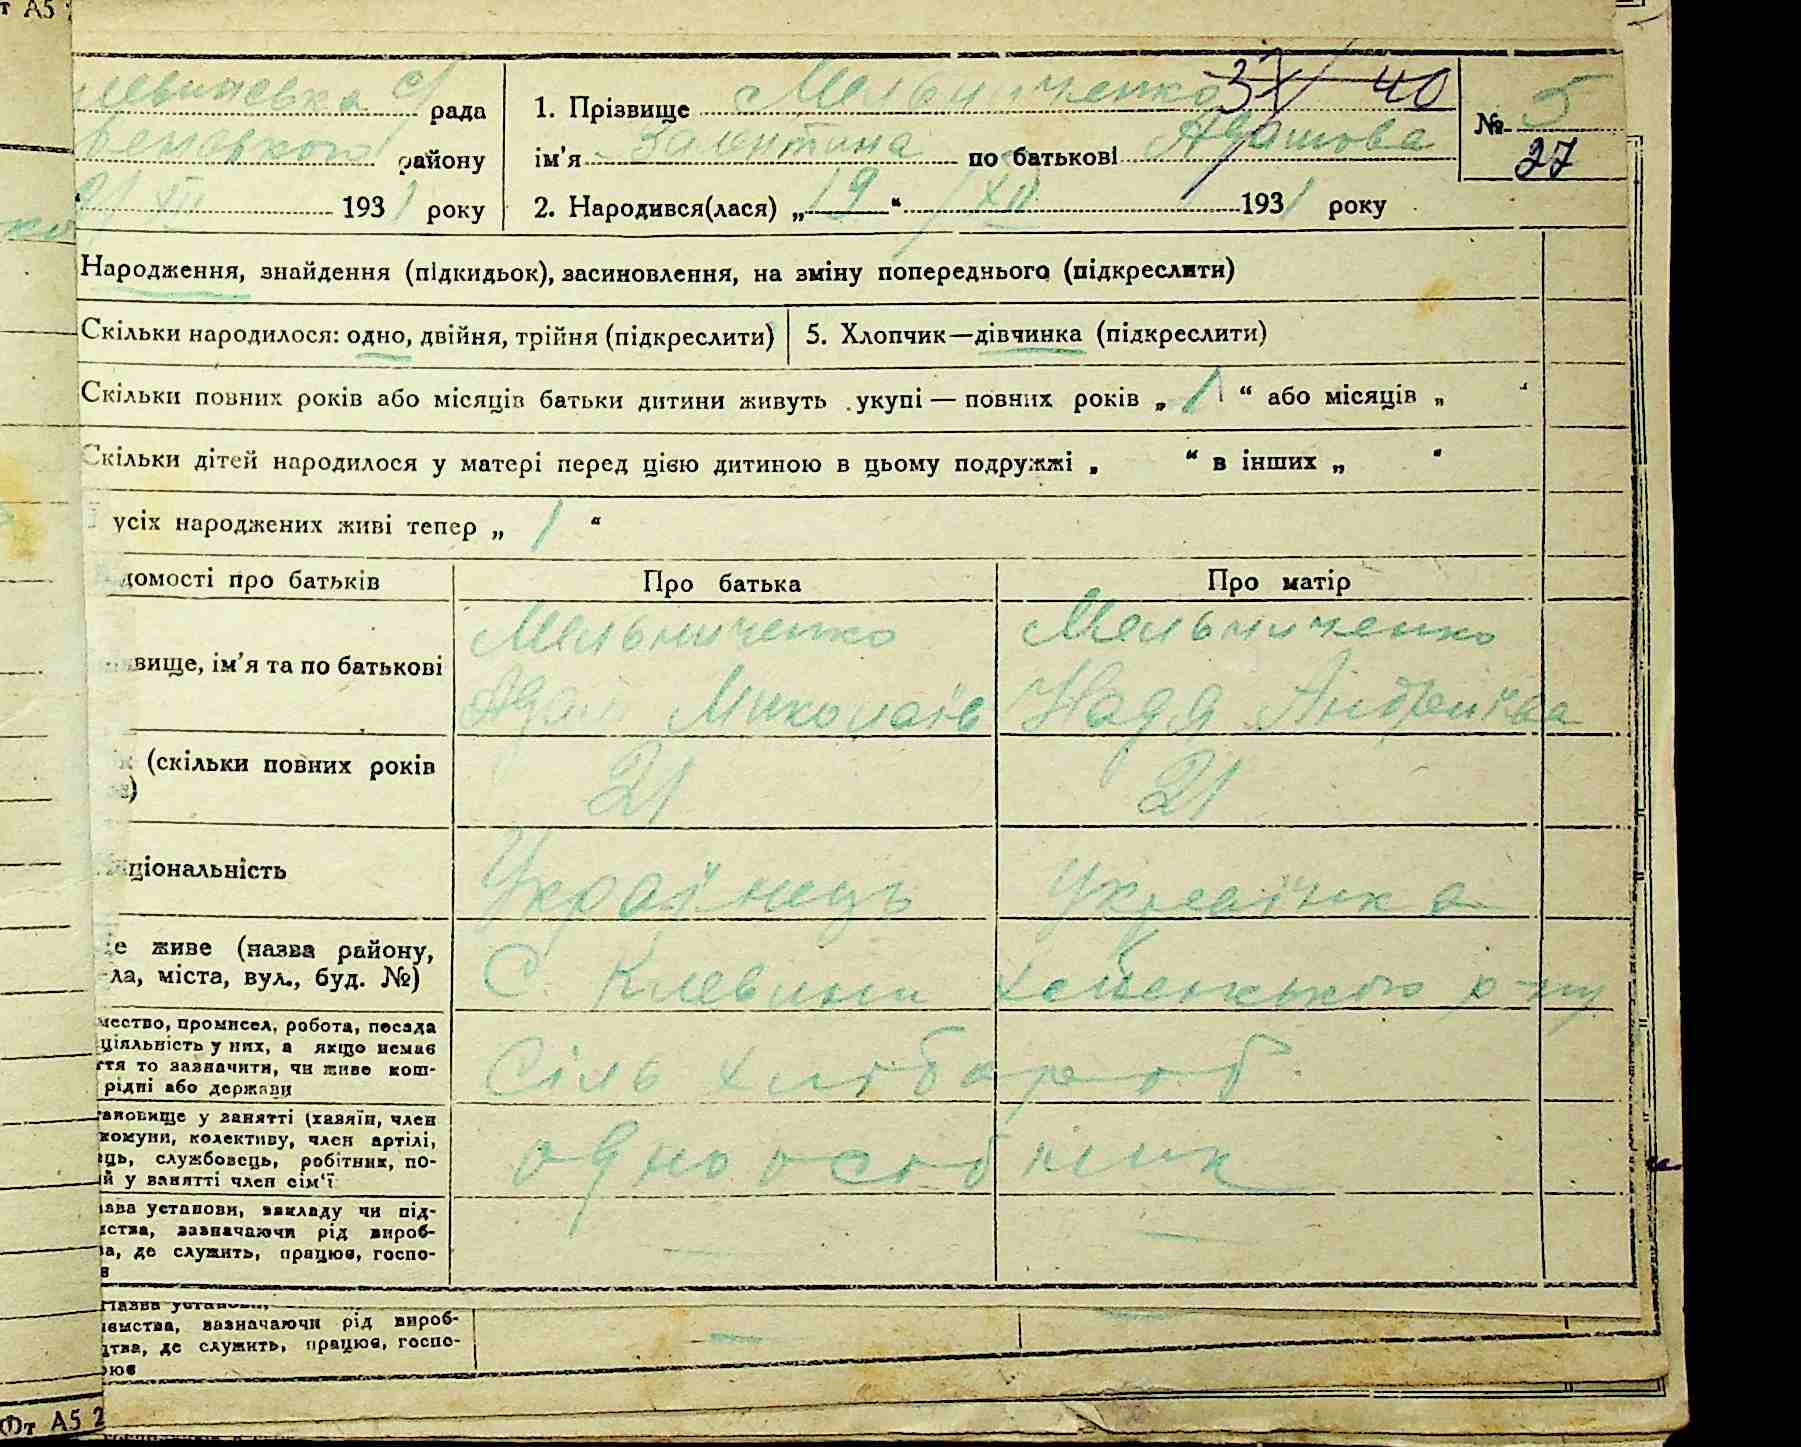 т А5
рада
1. Прізвище Мельниченко 3/XI 40
№ 5
району
ім'я Валентина по батькові Адамова
27
21 XII 1931 року
2. Народився(лася) „19“ XII 1931 року
Народження, знайдення (підкидьок), засиновлення, на зміну попереднього (підкреслити)
Скільки народилося: одно, двійня, трійня (підкреслити) 5. Хлопчик—дівчинка (підкреслити)
Скільки повних років або місяців батьки дитини живуть укупі — повних років „1“ або місяців „ “
Скільки дітей народилося у матері перед цією дитиною в цьому подружжі „ “ в інших „ “
усіх народжених живі тепер „ 1 “
домості про батьків Про батька Про матір
вище, ім'я та по батькові
Мельниченко
Адам Миколаїв
Мельниченко
Надя Андреївна
(скільки повних років
21 21
ціональність
Українець Українка
е живе (назва району,
ла, міста, вул., буд. №)
С. Клевини Хо р-ну
мество, промисел, робота, посада
ціяльність у них, а якщо немає
ття то зазначити, чи живе кош-
рідні або держави
Сіль хлібороб
ановище у занятті (хазяїн, член
комуни, колективу, член артілі,
ець, службовець, робітник, по-
й у занятті член сім'ї
одноосібник
зва установи, закладу чи під-
мства, зазначаючи рід вироб-
ва, де служить, працює, госпо-
в
Назва установи,
иємства, зазначаючи рід вироб-
цтва, де служить, працює, госпо-
рює
Фт А5 2